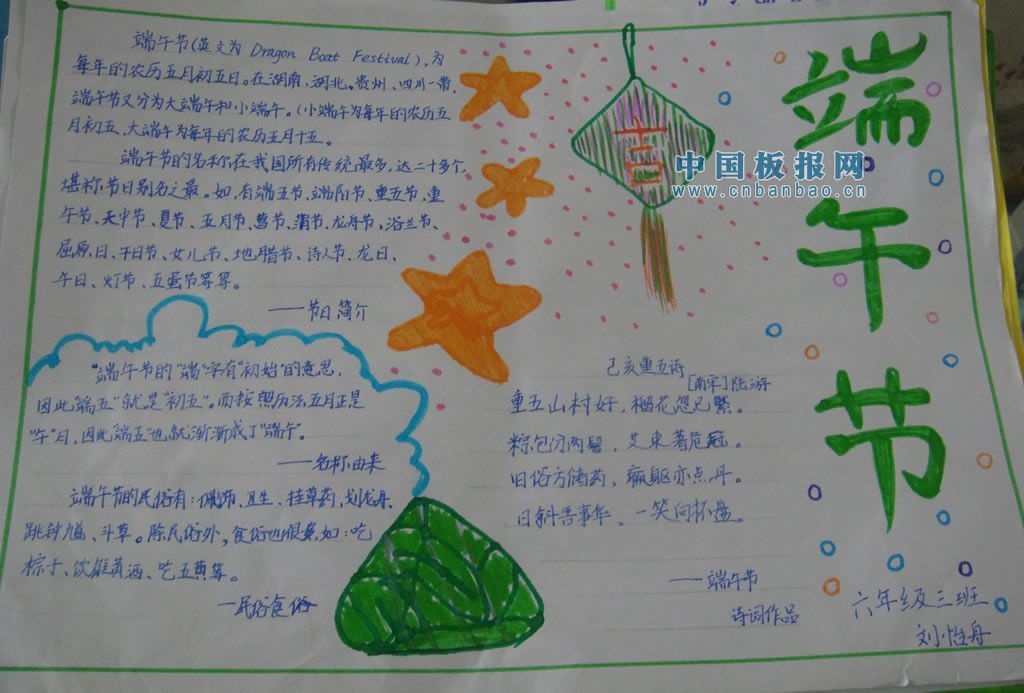 端午节(英文为 Dragon Boat Festival),为
每年的农历五月初五日。在湖南、湖北、贵州、四川一带,
端午节又分为大端午和小端午。(小端午为每年的农历五
月初五、大端午为每年的农历五月十五。
端午节的名称在我国所有传统最多,达二十多个,
堪称节日别名之最。如,有端五节、端阳节、重五节、重
午节、天中节、夏节、五月节、菖节、蒲节、龙舟节、浴兰节、
屈原日、午日节、女儿节、地腊节、诗人节、龙日、
午日、灯节、五蛋节等等。
——节日简介
“端午节的“端”字有“初始”的意思,
因此“端五”就是“初五”。而按照历法五月正是
“午”月,因此“端五”也就渐渐成了“端午”。
——名称由来
端午节的民俗有:、卫生、挂草药,划龙舟,
跳钟馗、斗草。除民俗外,食俗也很多,如:吃
粽子、饮雄黄酒、吃五黄等。
—民俗食俗
吉
中国板报网
www.cnbanbao.cn
端午节
己亥重五诗
[南宋]陆游
重五山村好,榴花忽已繁。
粽包分两髻,艾束著危冠。
旧俗方储药,羸躯亦点丹。
日斜吾事毕、一笑向杯盘。
——端午节
诗词作品
六年级三班
刘怡舟